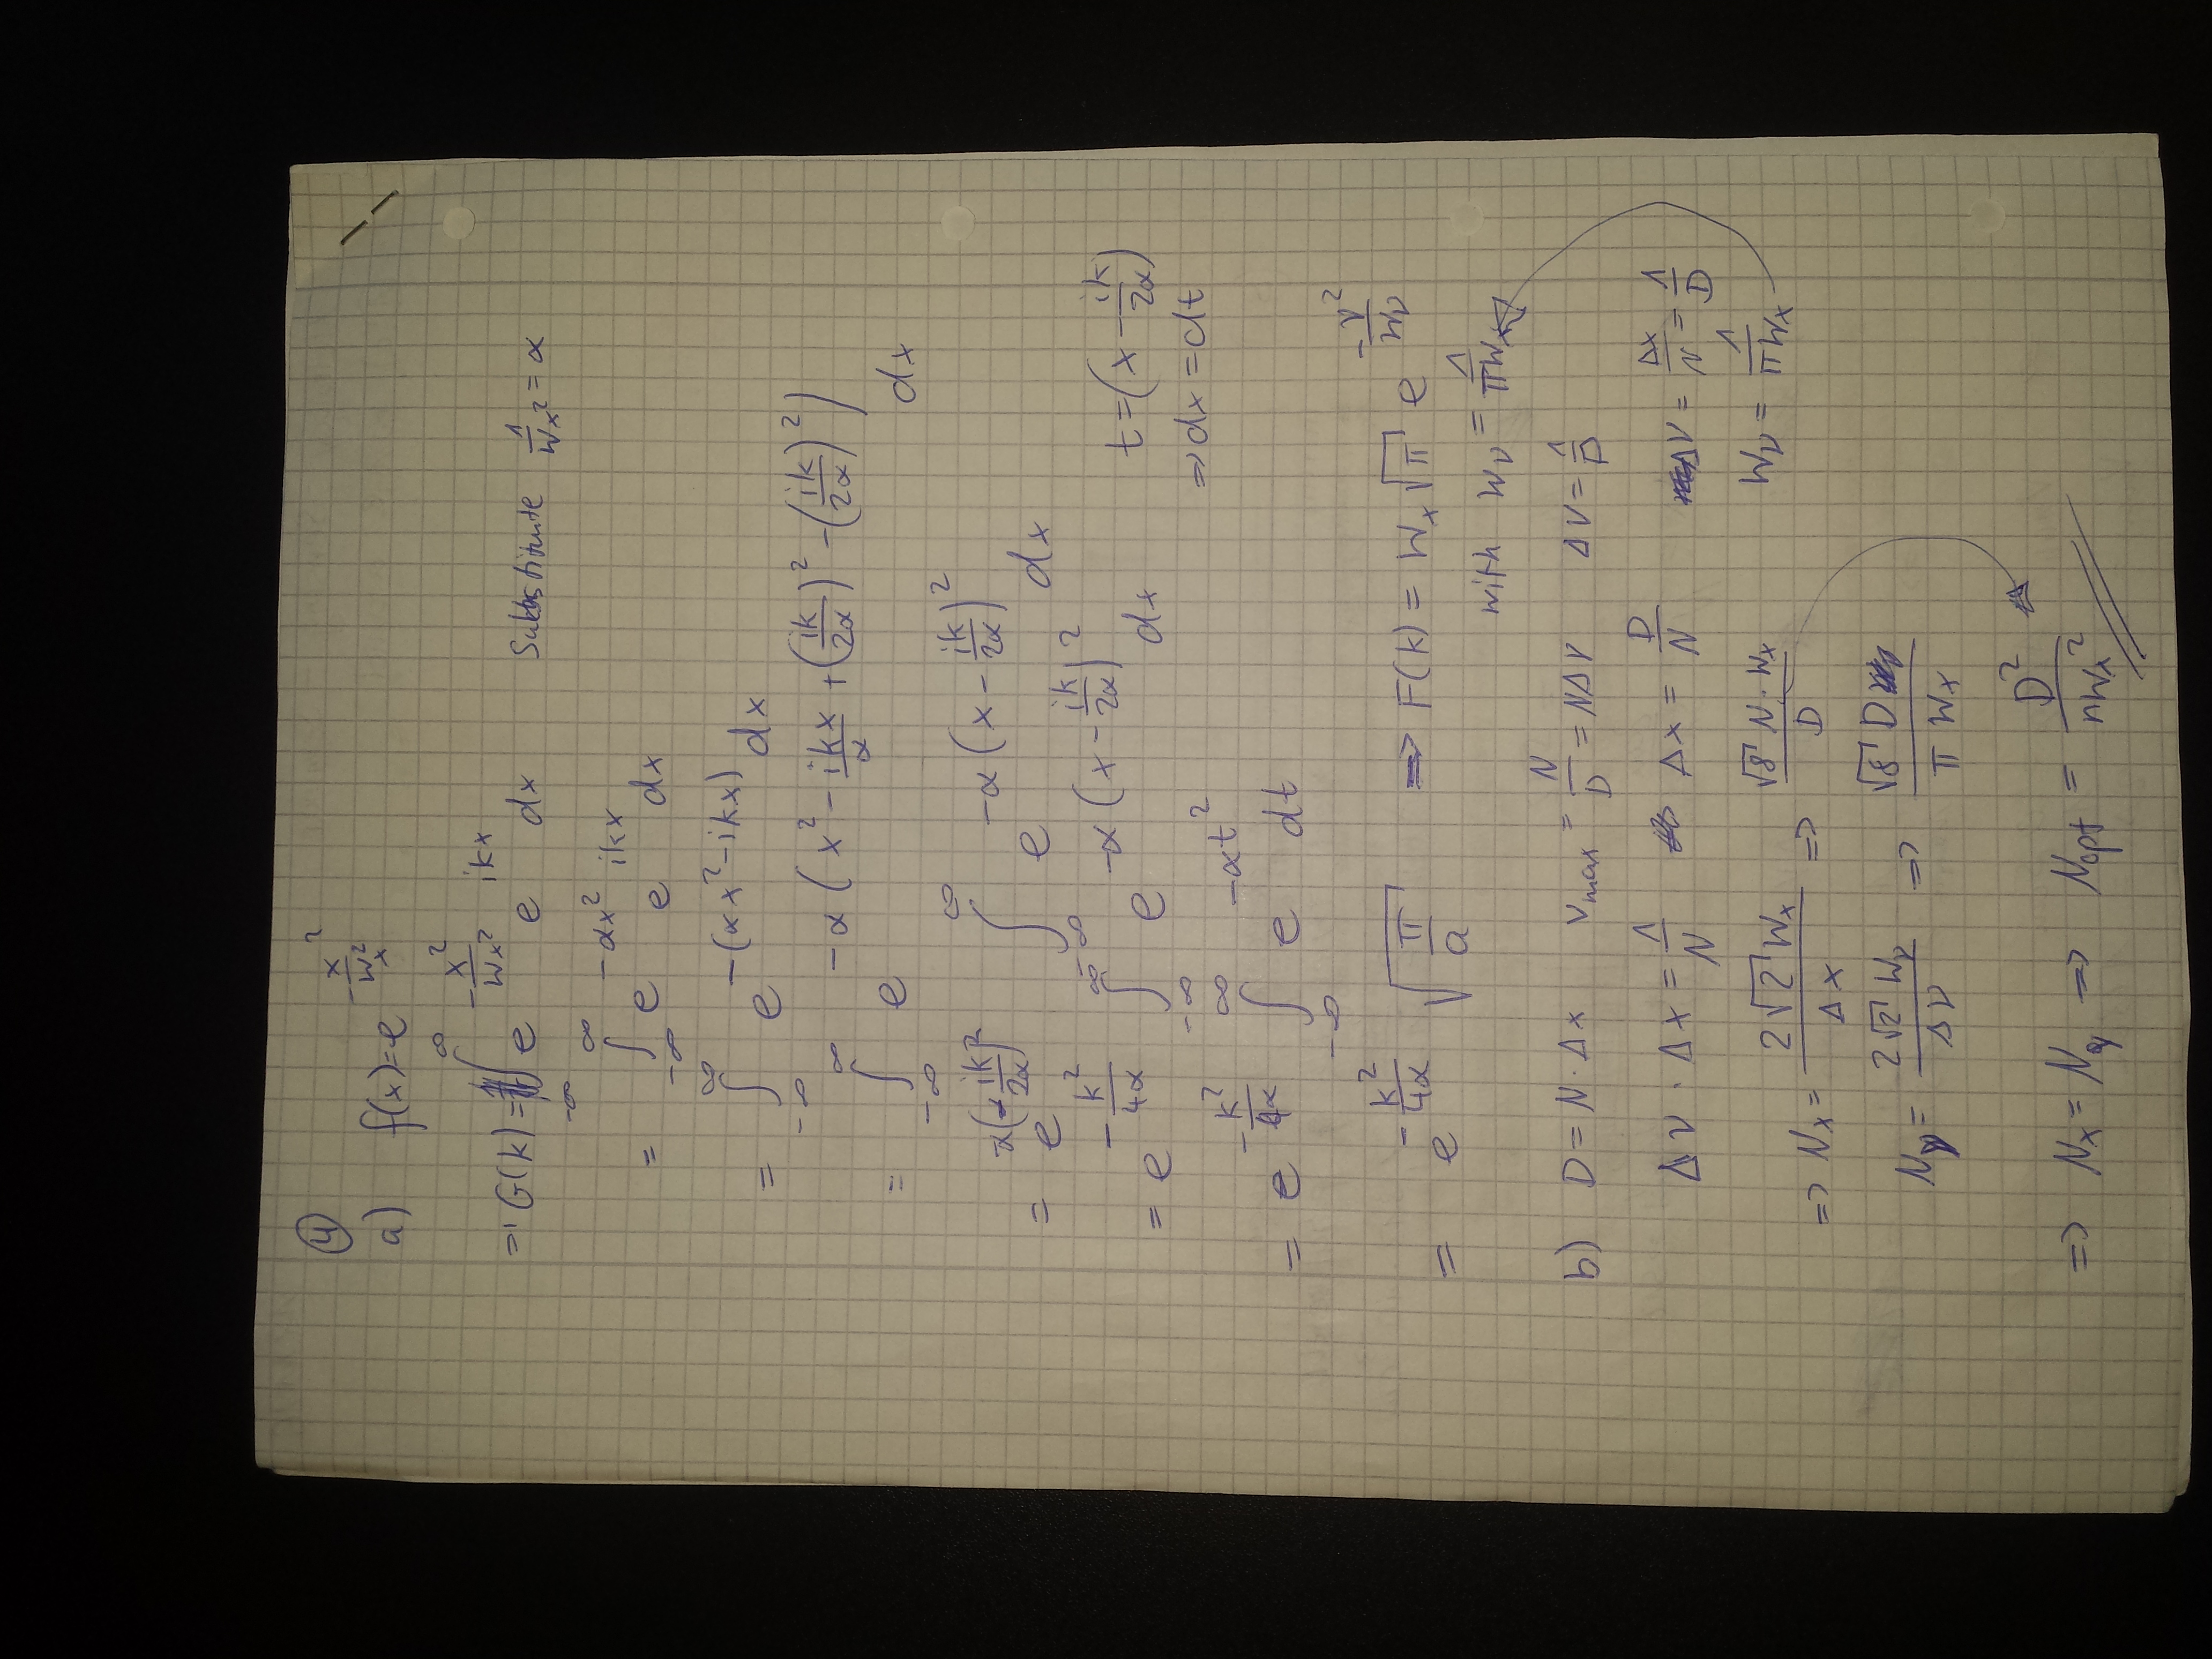 ④
a) f(x)=e^{-\frac{x^2}{w_x^2}}
=> G(k)= \int_{-∞}^{∞} e^{-\frac{x^2}{w_x^2}} e^{ikx} dx Substitute \frac{1}{w_x^2} = α
= \int_{-∞}^{∞} e^{-αx^2} e^{ikx} dx
= \int_{-∞}^{∞} e^{-(αx^2-ikx)} dx
= \int_{-∞}^{∞} e^{-α(x^2-\frac{ikx}{α}+(\frac{ik}{2α})^2-(\frac{ik}{2α})^2)} dx
= e^{-α(-\frac{ik}{2α})^2} \int_{-∞}^{∞} e^{-α(x-\frac{ik}{2α})^2} dx
= e^{-\frac{k^2}{4α}} \int_{-∞}^{∞} e^{-α(x-\frac{ik}{2α})^2} dx t=(x-\frac{ik}{2α})
=> dx = dt
= e^{-\frac{k^2}{4α}} \int_{-∞}^{∞} e^{-αt^2} dt
= e^{-\frac{k^2}{4α}} \sqrt{\frac{π}{a}} => F(k) = w_x \sqrt{π} e^{-\frac{ν^2}{w_ν}}
with w_ν = \frac{1}{πw_x}
b) D = N·Δx ν_{max} = \frac{N}{D} = NΔν Δν = \frac{1}{D}
Δν · Δx = \frac{1}{N} Δx = \frac{D}{N} Δν = \frac{Δx}{N} = \frac{1}{D}
w_ν = \frac{1}{πw_x}
=> N_x = \frac{2\sqrt{2} w_x}{Δx} => \frac{\sqrt{8} N·w_x}{D}
N_ν = \frac{2\sqrt{2} w_ν}{Δν} => \frac{\sqrt{8} D}{π w_x}
=> N_x = N_ν => N_{opt} = \frac{D^2}{πw_x^2}